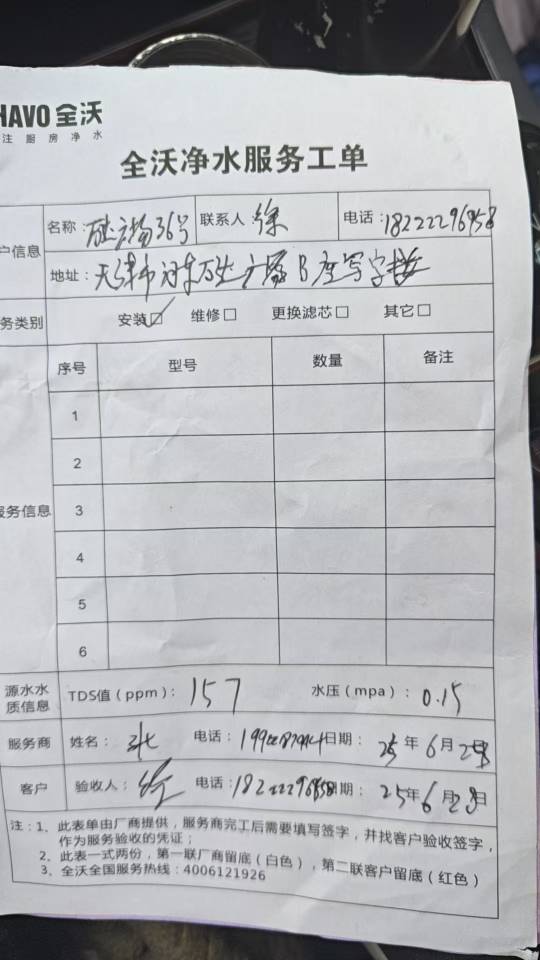 HAVO 全沃
注厨房净水
全沃净水服务工单
户信息 名称: 36号 联系人 徐 电话: 18222296958
地址: 天津市河东万达广场B座写字楼
务类别 安装☑ 维修□ 更换滤芯□ 其它□
序号 型号 数量 备注
1
2
服务信息 3
4
5
6
源水水质信息 TDS值(ppm): 157 水压(mpa): 0.15
服务商 姓名: 电话: 日期: 25年6月2 日
客户 验收人: 徐 电话: 18222296958 日期: 25年6月2 日
注:1、此表单由厂商提供,服务商完工后需要填写签字,并找客户验收签字,
作为服务验收的凭证;
2、此表一式两份,第一联厂商留底(白色),第二联客户留底(红色)
3、全沃全国服务热线:4006121926